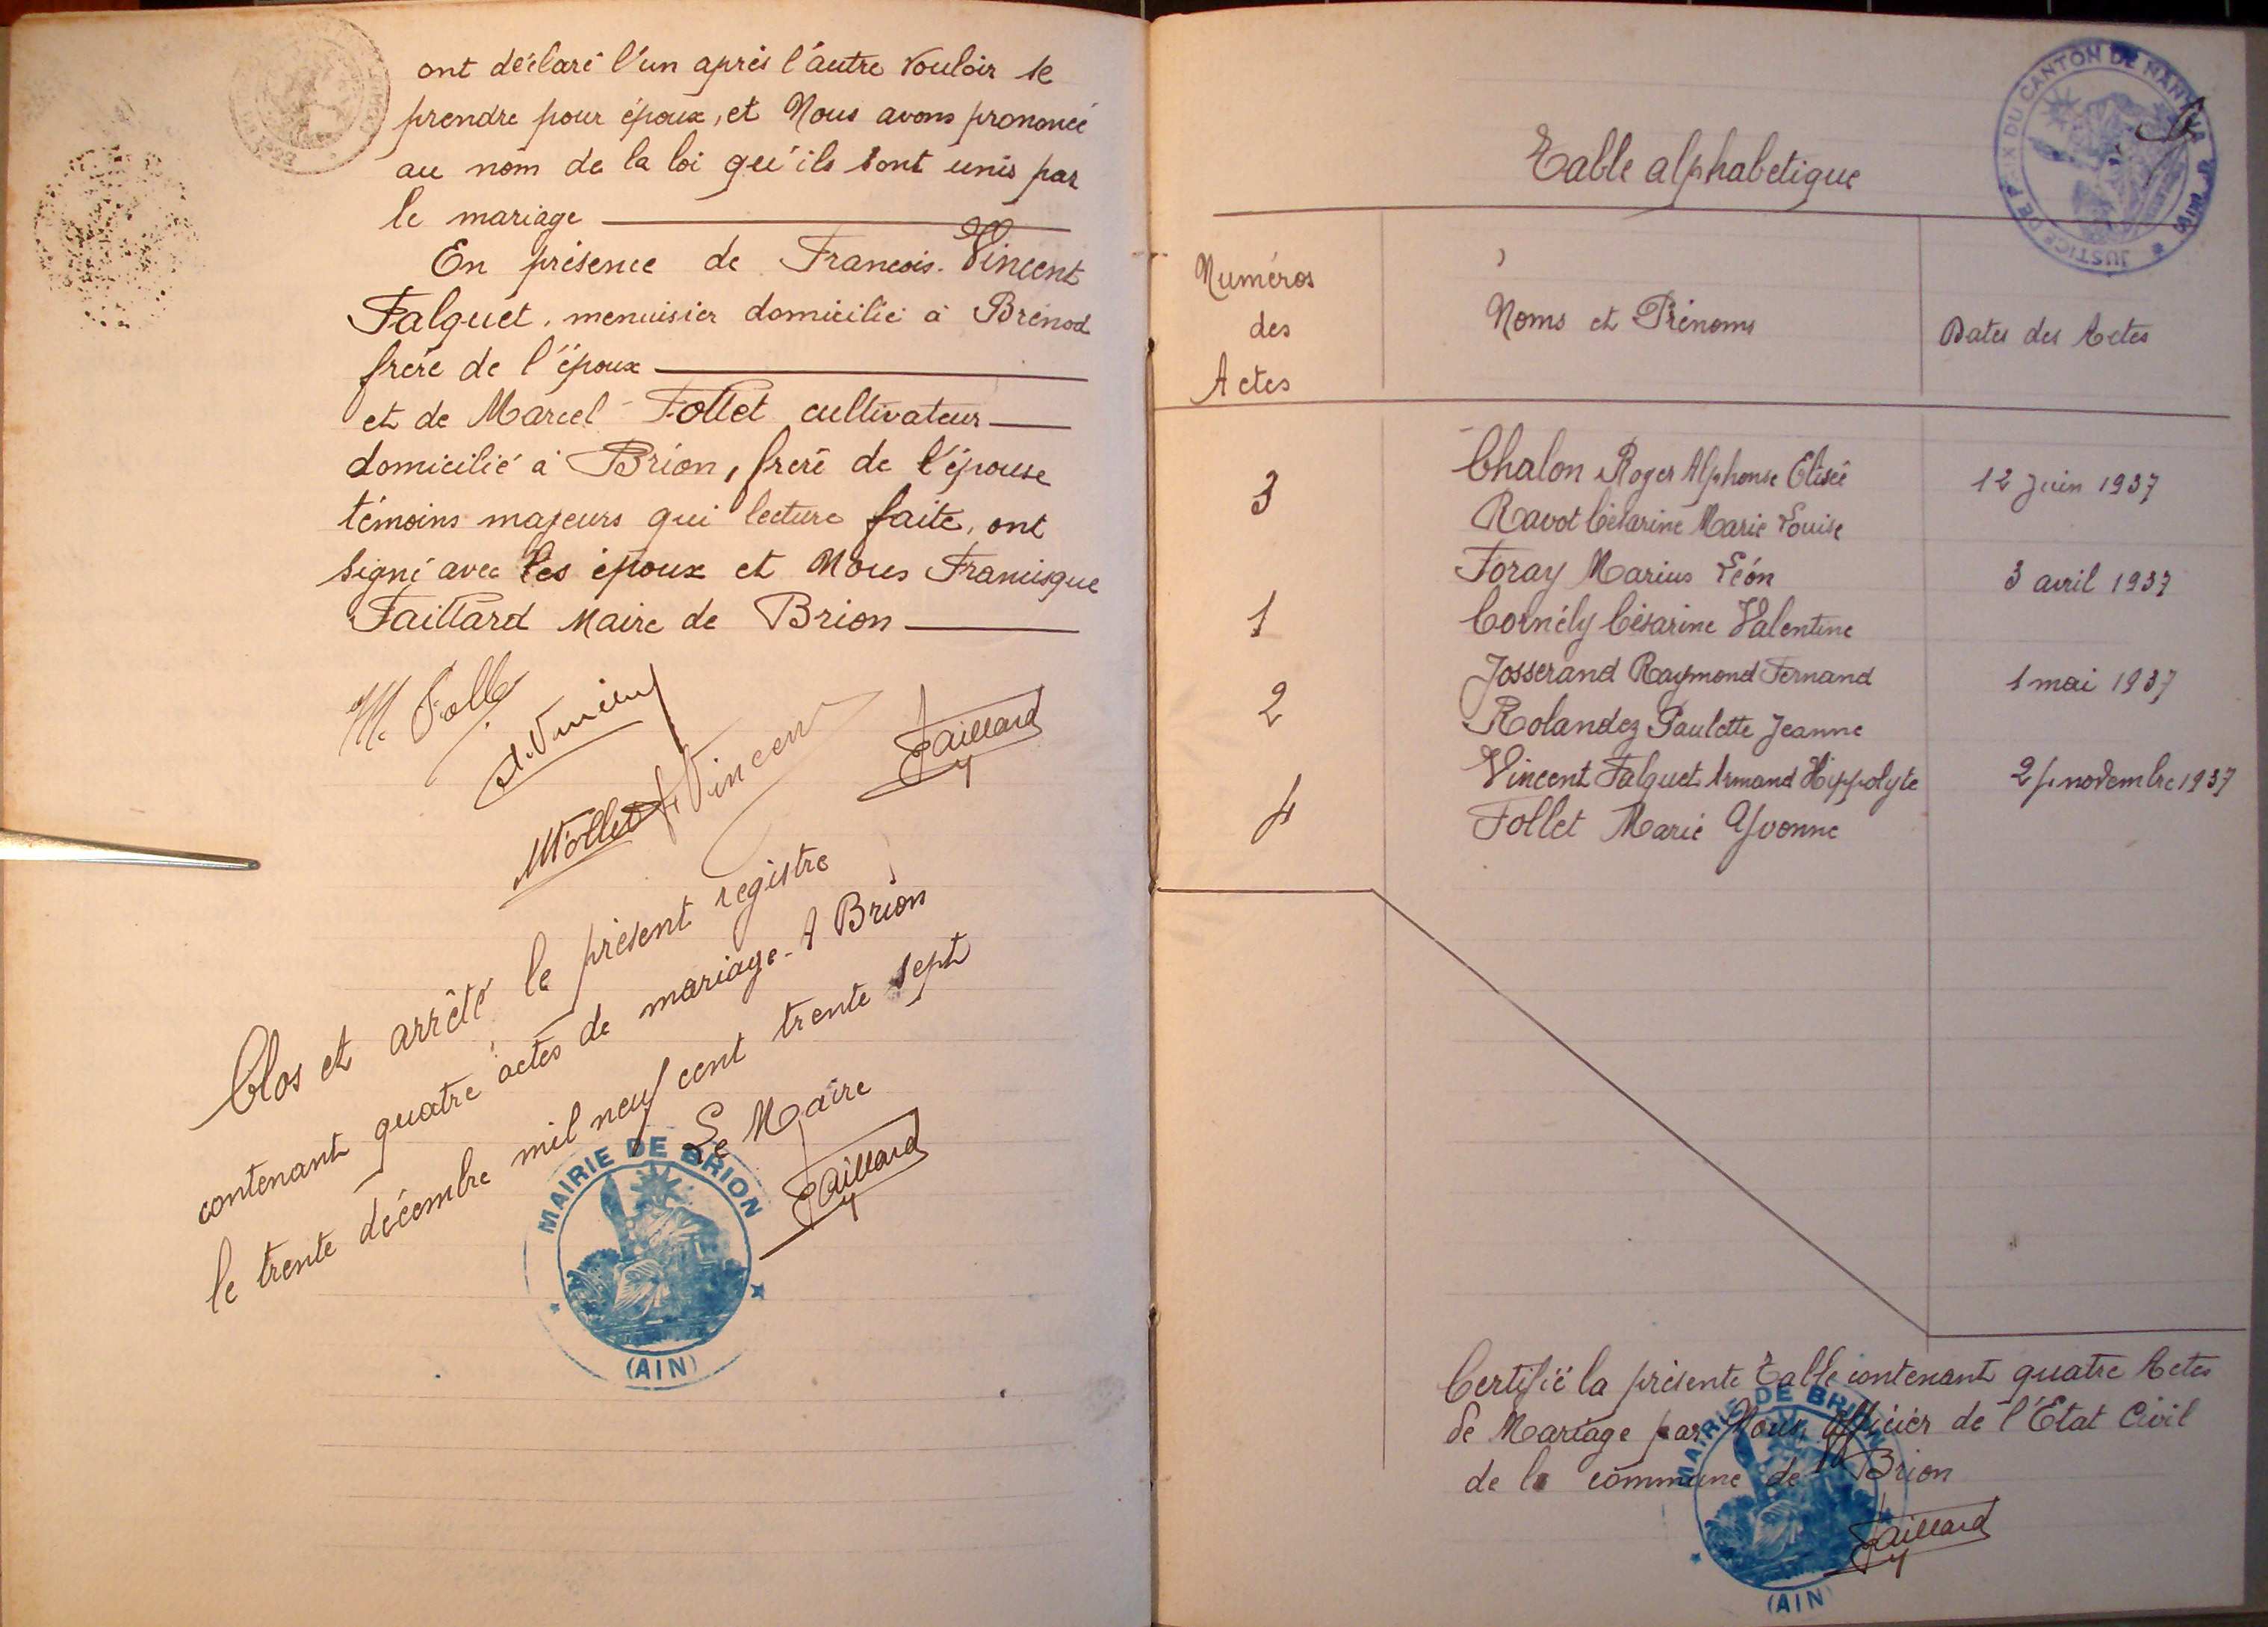 ont déclaré l'un après l'autre vouloir se
prendre pour époux, et Nous avons prononcé
au nom de la loi qu'ils sont unis par
le mariage
En présence de Francois. Vincent
Falquet, menuisier domicilié à Brénod
frère de l'époux
et de Marcel Follet cultivateur
domicilié à Brion, frère de l'épouse
témoins majeurs qui lecture faite, ont
signé avec les époux et Nous Francisque
Faillard Maire de Brion
M. Follet
A. Vincent
M Follet F. Vincent
Faillard
Clos et arrêté le présent registre
contenant quatre actes de mariage - A Brion
le trente décembre mil neuf cent trente sept
Le Maire
Faillard
MAIRIE DE BRION
(AIN)
JUSTICE DE PAIX DU CANTON DE NANTUA
Table alphabetique
Numéros
des
Actes
Noms et Prénoms
Dates des Actes
3
Chalon Roger Alphonse Elisée
12 Juin 1937
Ravot Césarine Marie Louise
1
Foray Marius Léon
3 avril 1937
Cornély Césarine Valentine
2
Josserand Raymond Fernand
1 mai 1937
Rolandez Paulette Jeanne
4
Vincent Falquet Armand Hippolyte
24 novembre 1937
Follet Marie Yvonne
Certifié la présente Table contenant quatre Actes
de Mariage par Nous, Officier de l'Etat Civil
de la commune de Brion
Faillard
MAIRIE DE BRION
(AIN)